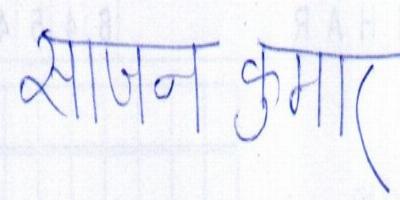 साजन कुमार